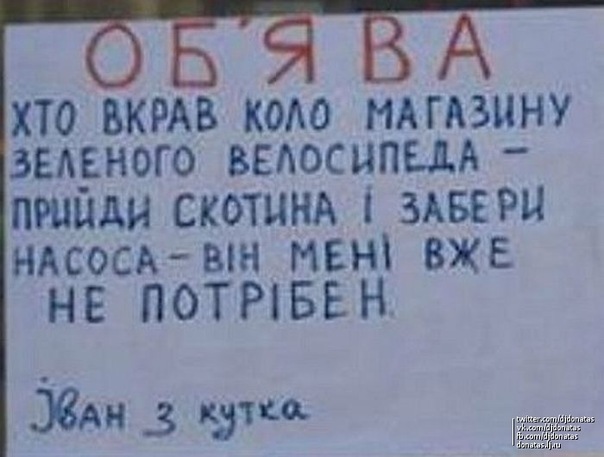 ОБ'ЯВА
ХТО ВКРАВ КОЛО МАГАЗИНУ
ЗЕЛЕНОГО ВЕЛОСИПЕДА –
ПРИЙДИ СКОТИНА І ЗАБЕРИ
НАСОСА – ВІН МЕНІ ВЖЕ
НЕ ПОТРІБЕН.
Іван з кутка
twitter.com/djdonatas
vk.com/djdonatas
fb.com/djdonatas
donatas.ljau